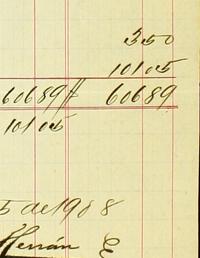 350
10105
60689 // 60689
10105
5 de 1908
Herrán E